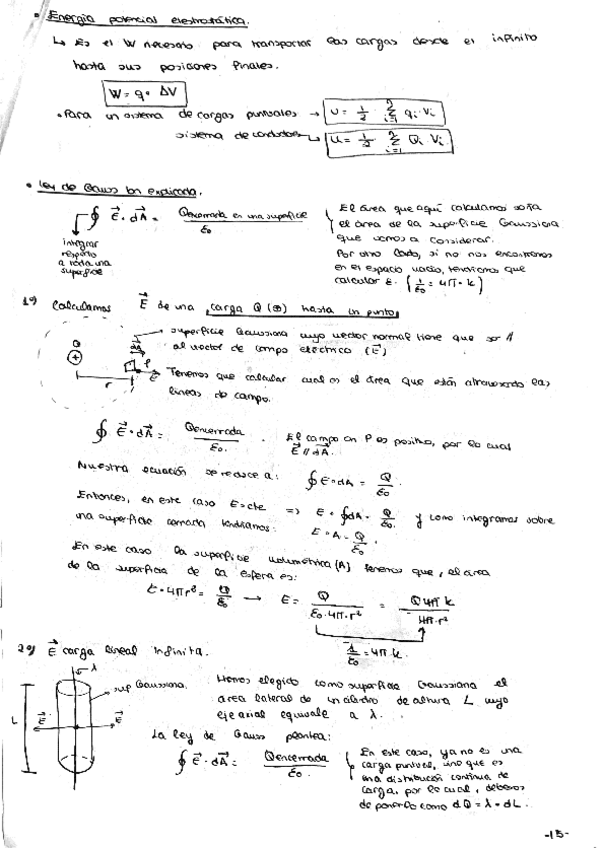 • Energía potencial electrostática.
↳ Es el W necesario para transportar las cargas desde el infinito
hasta sus posiciones finales.
W = q · ΔV
• Para un sistema de cargas puntuales → U = 1/2 Σ i=1 qi · Vi
sistema de conductores → U = 1/2 Σ i=1 Qi · Vi
• Ley de Gauss
∮ E · dA = Qencerrada en una superficie / ε0
integrar
respecto
a toda una
superficie
El área que aquí calculamos sería
el área de la superficie Gaussiana
que vamos a considerar.
Por otro lado, si no nos encontramos
en el espacio vacío, tendríamos que
calcular ε. (1/ε0 = 4π · k)
1º) Calculamos E de una carga Q (⊕) hasta un punto
→ superficie Gaussiana cuyo vector normal tiene que ser //
al vector de campo eléctrico (E)
Q
⊕
r
P
E
Tenemos que calcular cual es el área que están atravesando las
líneas de campo.
∮ E · dA = Qencerrada / ε0. El campo en P es positivo, por lo cual
E // dA.
Nuestra ecuación se reduce a: ∮ E · dA = Q / ε0
Entonces, en este caso E = cte => E · ∮ dA = Q / ε0 y como integramos sobre
una superficie cerrada tendríamos: E · A = Q / ε0.
En este caso la superficie volumétrica (A) tenemos que, el área
de la superficie de la esfera es:
E · 4πr² = Q / ε0 → E = Q / ε0 · 4π · r² = Q 4π k / 4π · r²
1 / ε0 = 4π · k.
2º) E carga lineal infinita.
λ
→ sup Gaussiana.
L
E
E
Hemos elegido como superficie Gaussiana el
área lateral de un cilindro de altura L cuyo
eje axial equivale a λ.
La ley de Gauss plantea:
∮ E · dA = Qencerrada / ε0.
En este caso, ya no es una
carga puntual, sino que es
una distribución continua de
carga, por lo cual, debemos
de ponerlo como dQ = λ · dL.
-15-